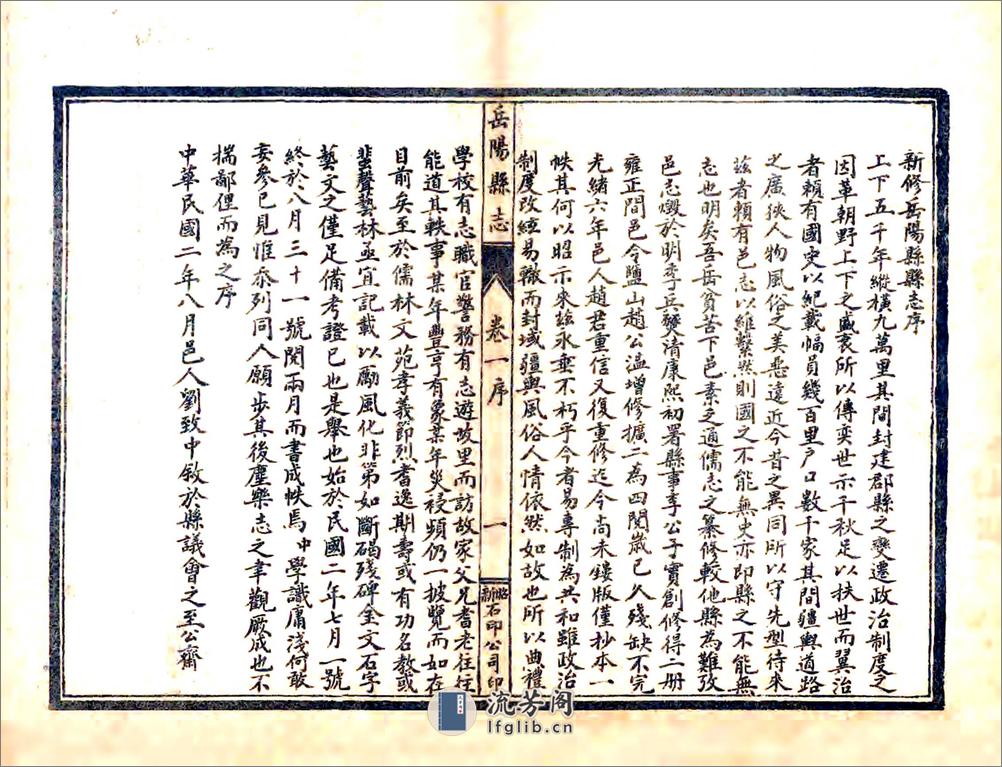 新修岳陽縣縣志序
上下五千年縱橫九萬里其間封建郡縣之變遷政治制度之
因革朝野上下之盛衰所以傳奕世示千秋足以扶世而翼治
者賴有國史以紀載幅員幾百里戶口數千家其間疆輿道路
之廣狹人物風俗之美惡遠近今昔之異同所以守先型待來
茲者賴有邑志以維繫然則國之不能無史亦即縣之不能無
志也明矣吾岳貧苦下邑素乏通儒志之纂修較他縣為難攷
邑志燬於明季兵燹清康熙初署縣事李公子實創修得二册
雍正間邑令鹽山趙公溫增修擴二為四閱歲已久殘缺不完
光緒六年邑人趙君重信又復重修迄今尚未鏤版僅抄本一
帙其何以昭示來茲永垂不朽乎今者易專制為共和雖政治
制度改經易轍而封域疆輿風俗人情依然如故也所以典禮
岳陽縣志
卷一序
一
石印公司印
學校有志職官警務有志遊故里而訪故家父兄耆老往往
能道其軼事某年豐亨有象某年災祲頻仍一披覽而如在
目前矣至於儒林文苑孝義節烈耆逸期壽或有功名教或
蜚聲藝林亟宜記載以勵風化非第如斷碣殘碑金文石字
藝文之僅足備考證已也是舉也始於民國二年七月一號
終於八月三十一號閱兩月而書成帙焉中學識庸淺何敢
妄參已見惟忝列同人願步其後塵樂志之聿觀厥成也不
揣鄙俚而為之序
中華民國二年八月邑人劉致中敘於縣議會之至公齋
流芳阁
lfglib.cn